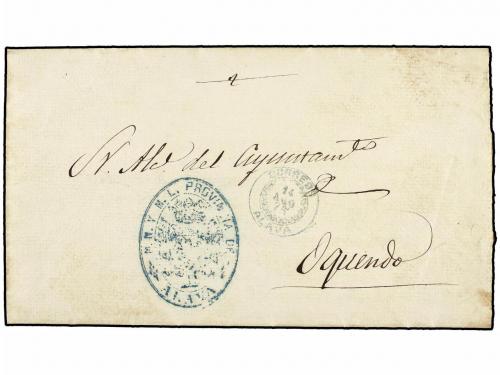 Sr. Alce. del Ayuntamto
Oquendo
M. N. Y M. L. PROVINCIA DE
ALAVA
CORREO
14
ALAVA